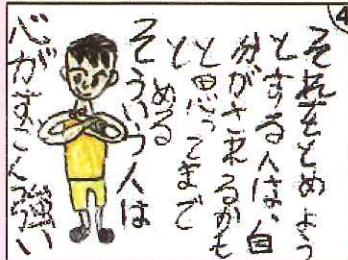 4
それをとめよう
とする人は、自
分がされるかも
と思ってまで
とめる
そういう人は
心がすごく強い